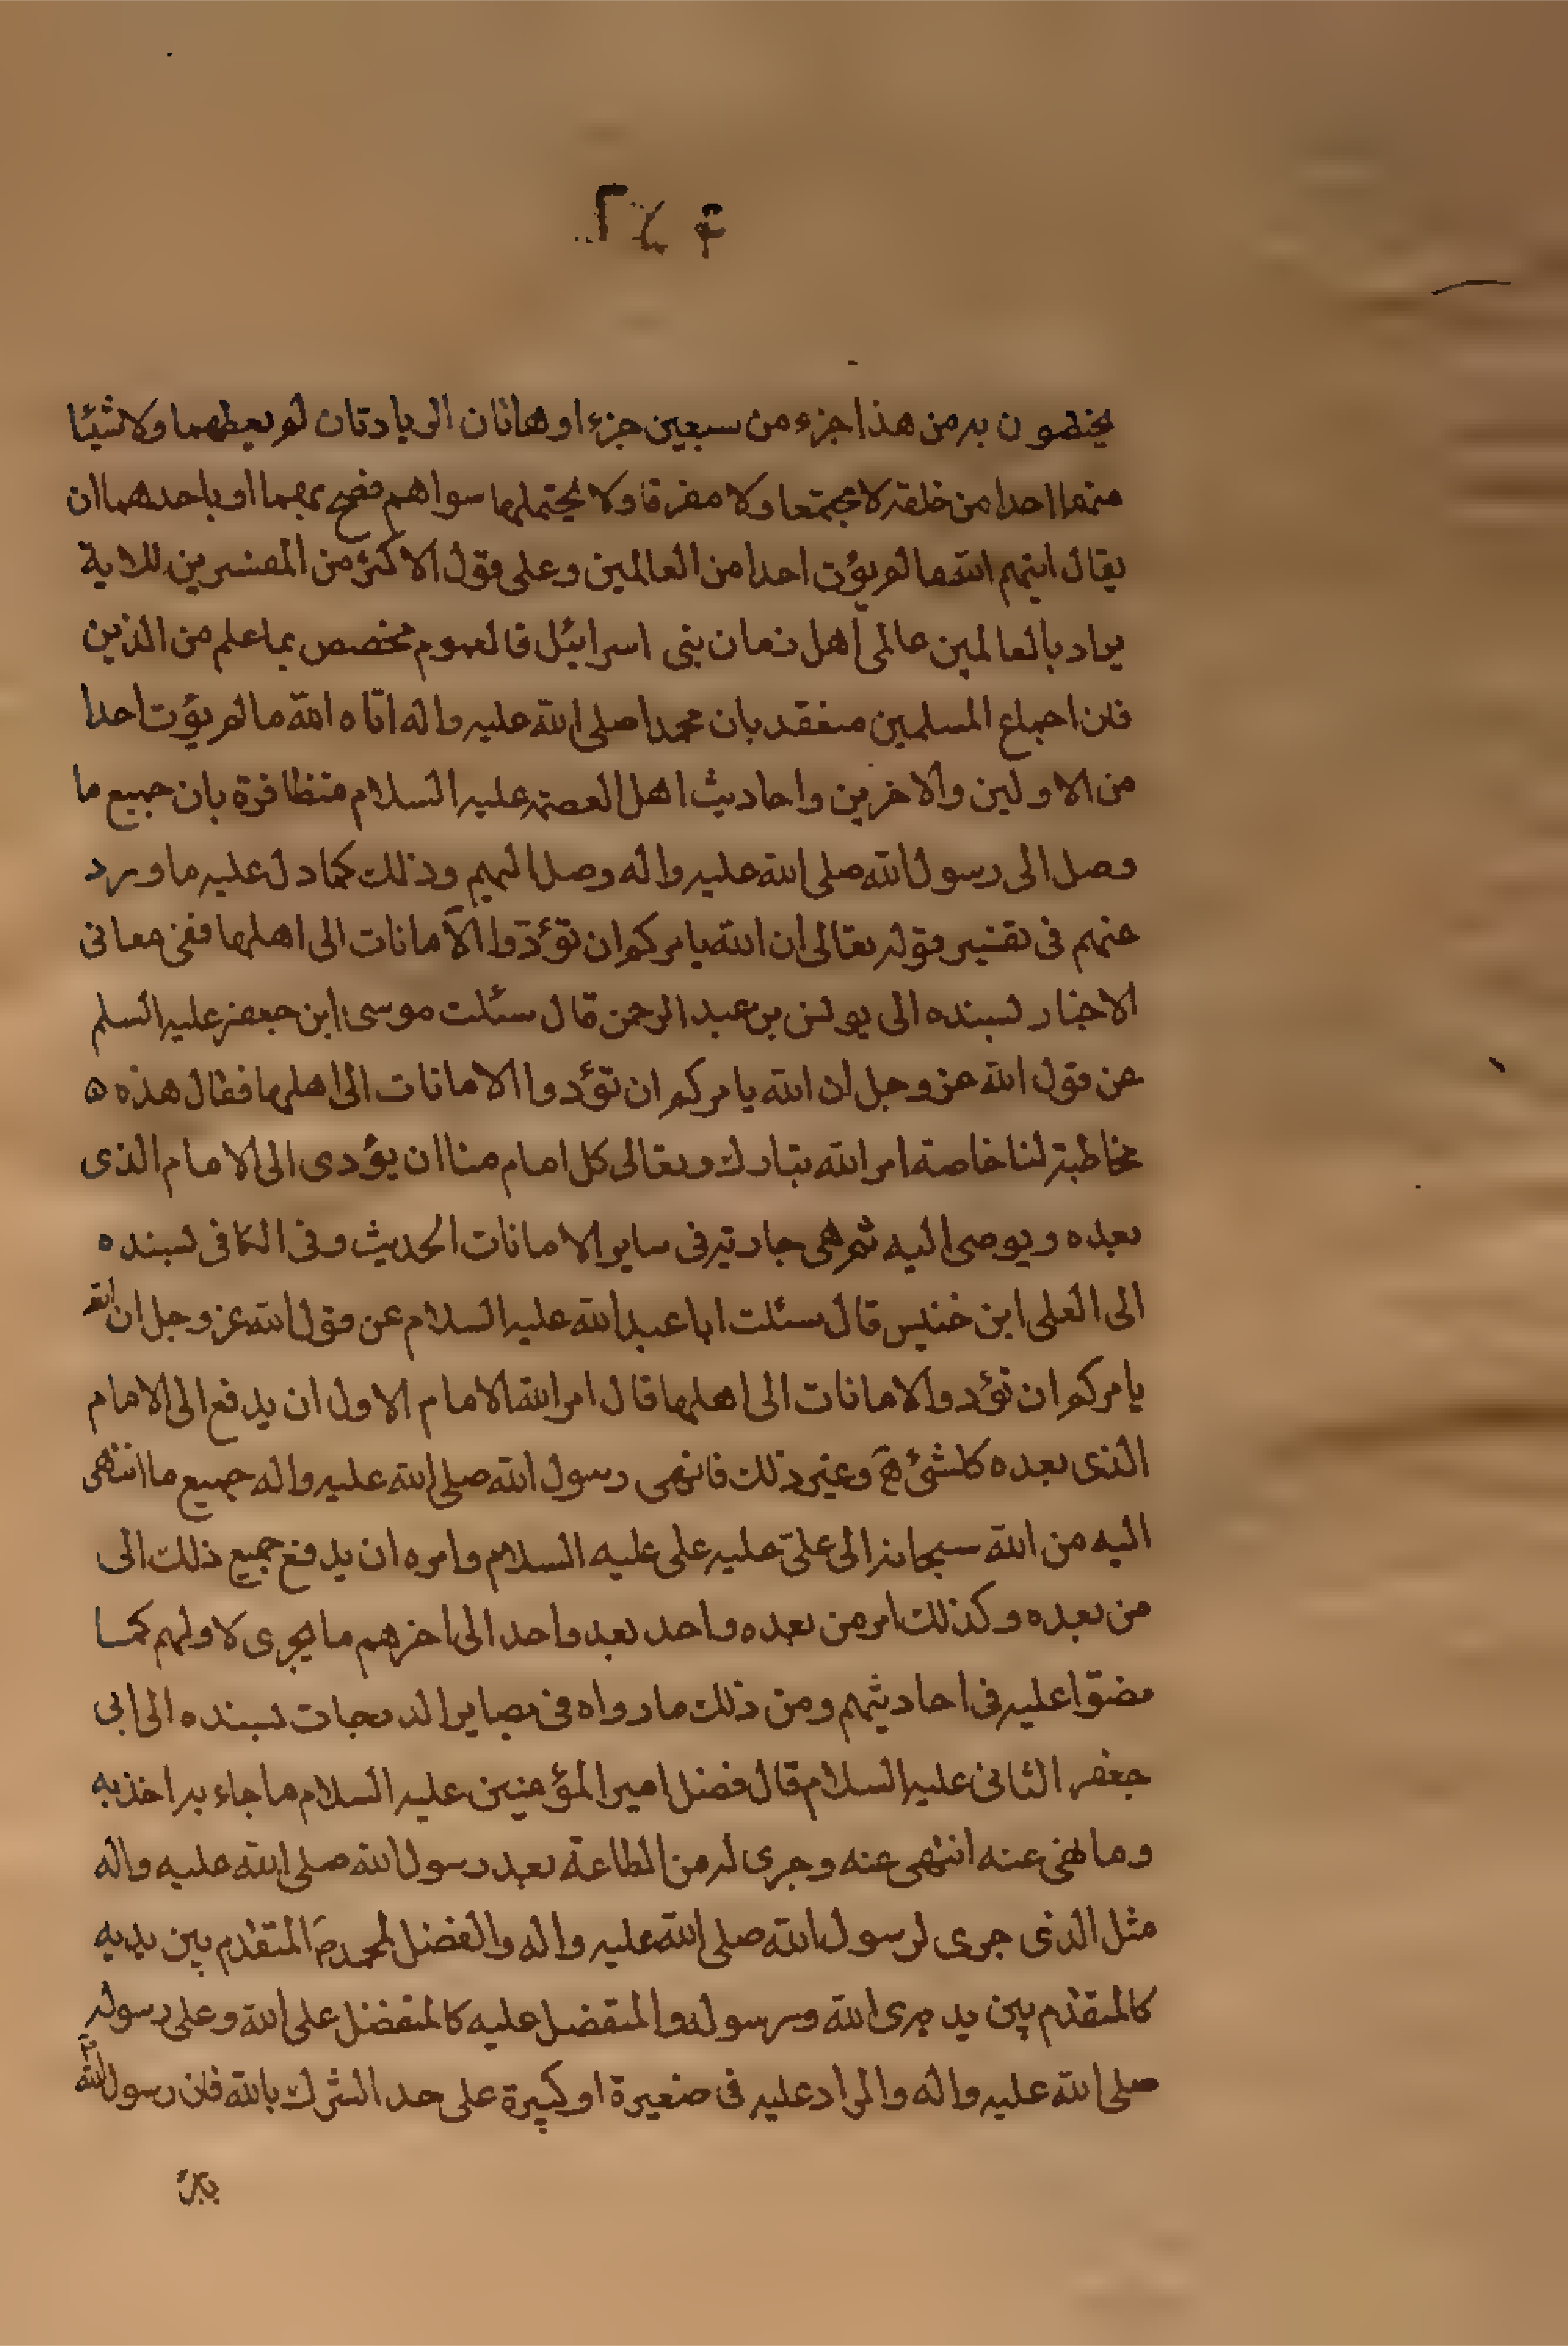 يختصون به من هذا جزء من سبعين جزء او هاتان الزيادتان لم يعطهما ولا شيئا
منهما احدا من خلقه لا مجتمعا ولا مفرقا ولا يحتملهما سواهم فصح بهما او باحدهما ان
يقال اتيهم الله ما لم يؤت احدا من العالمين وعلى قول الاكثر من المفسرين للاية
يراد بالعالمين عالمى اهل زمان بنى اسرائيل فالعموم مخصص بما علم من الذين
فان اجماع المسلمين منعقد بان محمدا صلى الله عليه واله اتاه الله ما لم يؤت احدا
من الاولين والاخرين واحاديث اهل العصمة عليه السلام متظافرة بان جميع ما
وصل الى رسول الله صلى الله عليه واله وصل اليهم وذلك كما دل عليه ما ورد
عنهم فى تفسير قوله تعالى ان الله يامركم ان تؤدوا الامانات الى اهلها ففى معانى
الاخبار بسنده الى يونس بن عبد الرحمن قال سئلت موسى ابن جعفر عليه السلم
عن قول الله عز وجل ان الله يامركم ان تؤدوا الامانات الى اهلها فقال هذه ه
مخاطبة لنا خاصة امر الله تبارك وتعالى كل امام منا ان يؤدى الى الامام الذى
بعده ويوصى اليه ثم هى جارية فى ساير الامانات الحديث وفى الكافى بسنده
الى العلى ابن خنيس قال سئلت ابا عبد الله عليه السلام عن قول الله عز وجل ان الله
يامركم ان تؤدوا الامانات الى اهلها قال امر الله الامام الاول ان يدفع الى الامام
الذى بعده كلشئ وغير ذلك فانهى رسول الله صلى الله عليه واله جميع ما انتهى
اليه من الله سبحانه الى على عليه على عليه السلام وامره ان يدفع جميع ذلك الى
من بعده وكذلك امر من بعده واحد بعد واحد الى اخرهم ما يجرى لاولهم كما
نصوا عليه فى احاديثهم ومن ذلك ما رواه فى بصاير الدرجات بسنده الى ابى
جعفر الثانى عليه السلام قال فضل امير المؤمنين عليه السلام ما جاء به اخذ به
وما نهى عنه انتهى عنه وجرى له من الطاعة بعد رسول الله صلى الله عليه واله
مثل الذى جرى لرسول الله صلى الله عليه واله والفضل لمحمد ص المتقدم بين يديه
كالمتقدم بين يدى الله ورسوله والمتفضل عليه كالمتفضل على الله وعلى رسوله
صلى الله عليه واله والراد عليه فى صغيرة او كبيرة على حد الشرك بالله فان رسول الله